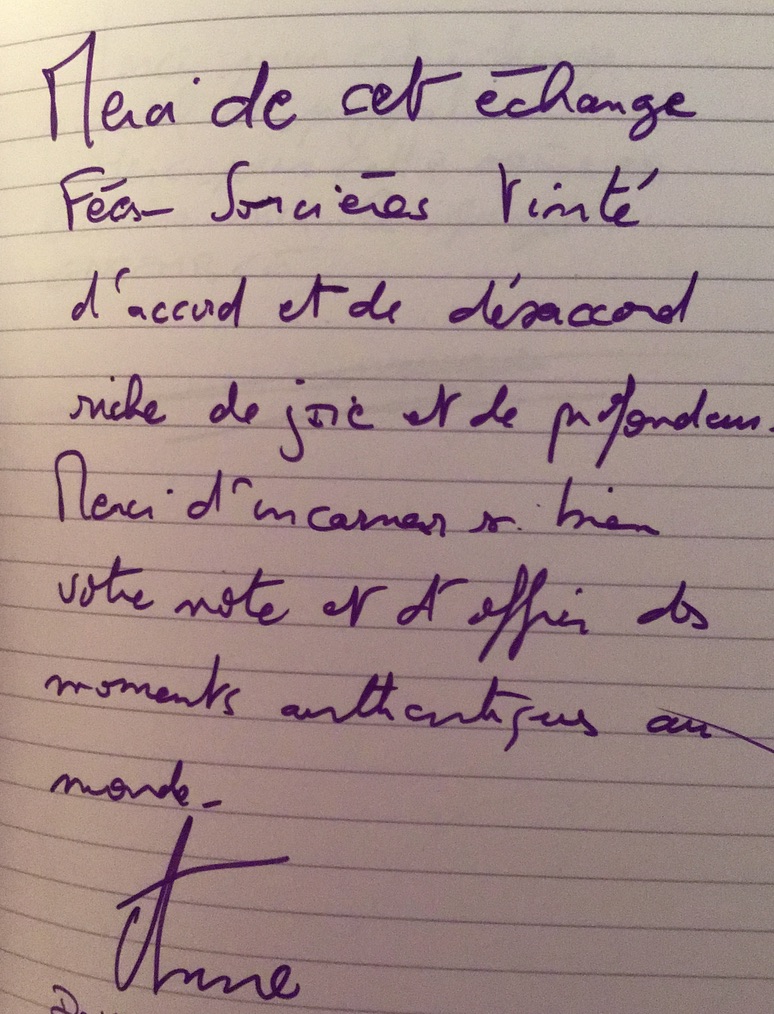 Merci de cet échange
Fées Sorcières Vérité
d'accord et de désaccord
riche de joie et de profondeur.
Merci d'incarner si bien
votre note et d'offrir des
moments authentiques au
monde_
Anne